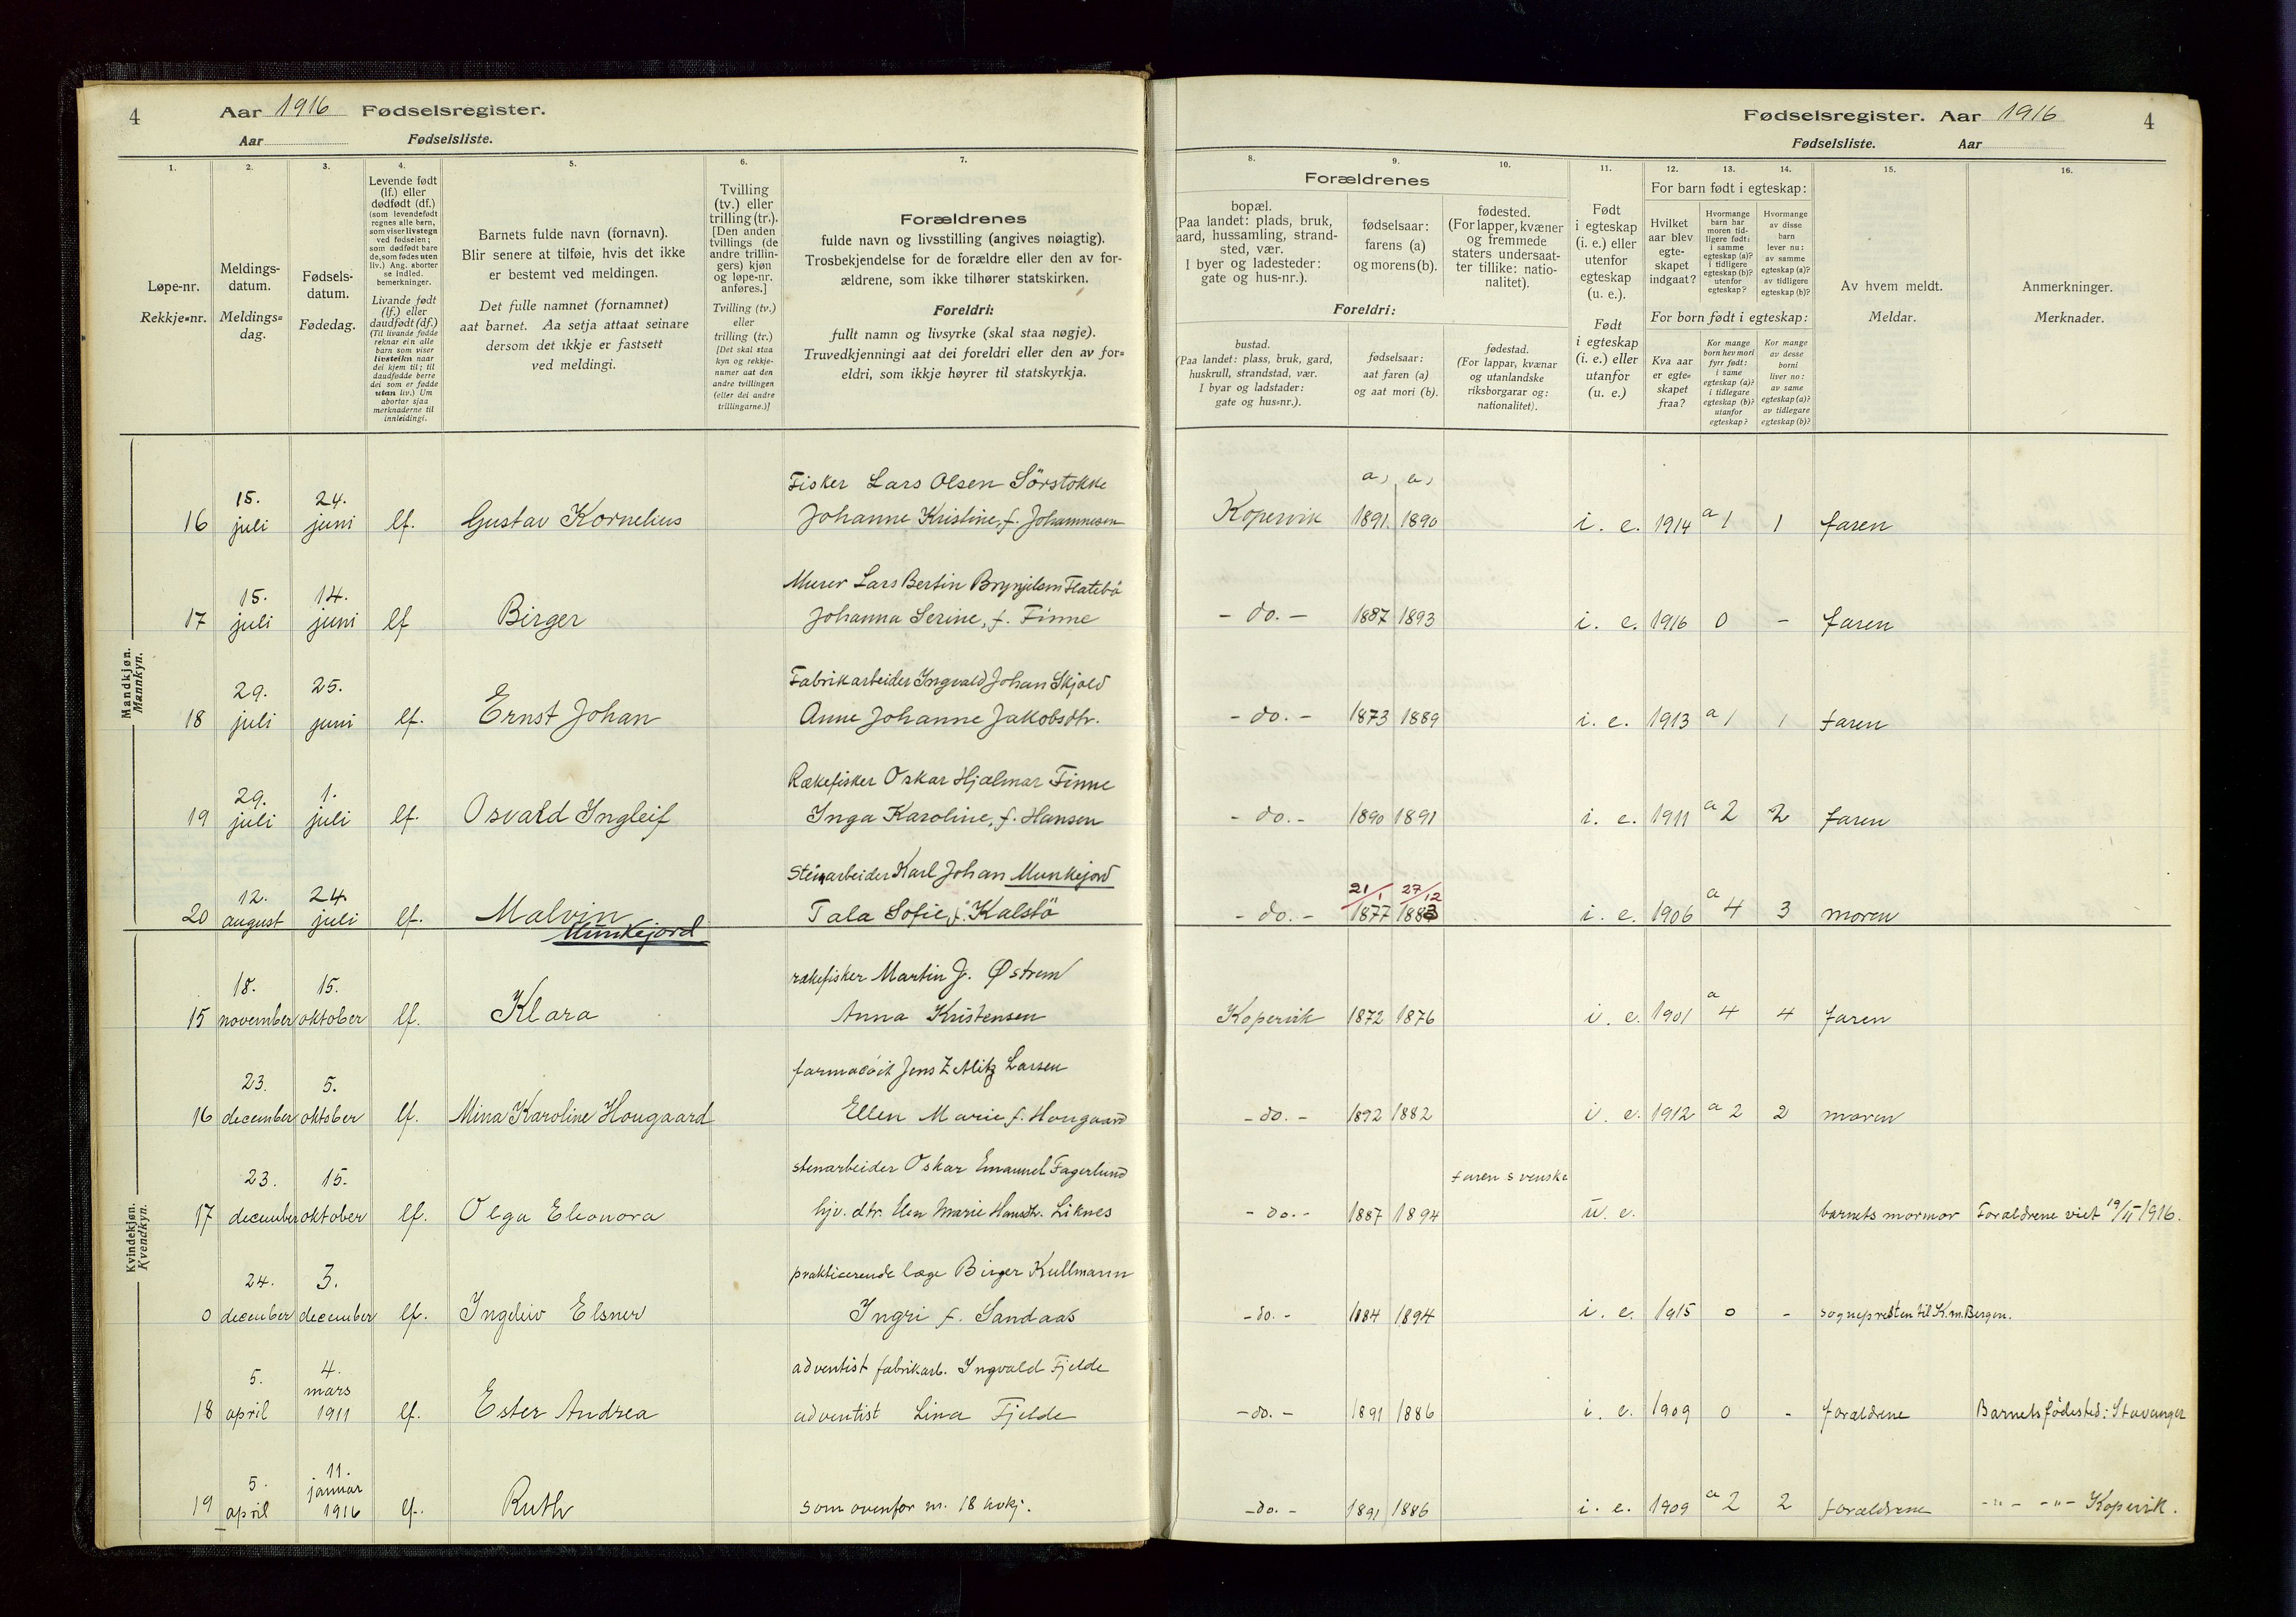 4 Aar 1916 Fødselsregister.
Aar Fødselsliste.
1. 2. 3. 4. 5. 6. 7.
Løpe-nr.
Rekkje=nr.
Meldings-
datum.
Meldings=
dag.
Fødsels-
datum.
Fødedag.
Levende født
(lf.) eller
dødfødt (df.)
(som levendefødt
regnes alle barn,
som viser livstegn
ved fødselen;
som dødfødt bare
de, som fødes uten
liv.) Ang. aborter
se indled.
bemerkninger.
Livande født
(lf.) eller
daudfødt (df.)
(Til livande fødde
reknar ein alle
barn som viser
livsteikn naar
dei kjem til; til
daudfødde berre
dei som er fødde
utan liv.) Um
abortar sjaa
merknaderne til
innleidingi.
Barnets fulde navn (fornavn).
Blir senere at tilføie, hvis det ikke
er bestemt ved meldingen.
Det fulle namnet (fornamnet)
aat barnet. Aa setja attaat seinare
dersom det ikkje er fastsett
ved meldingi.
Tvilling
(tv.) eller
trilling (tr.).
[Den anden
tvillings (de
andre trillin-
gers) kjøn
og løpe-nr.
anføres.]
Tvilling (tv.)
eller
trilling (tr.)
[Det skal staa
kyn og rekkje-
numer aat den
andre tvillingen
(eller dei andre
trillingarne.)]
Forældrenes
fulde navn og livsstilling (angives nøiagtig).
Trosbekjendelse for de forældre eller den av for-
ældrene, som ikke tilhører statskirken.
Foreldri:
fullt namn og livsyrke (skal staa nøgje).
Truvedkjenningi aat dei foreldri eller den av for=
eldri, som ikkje høyrer til statskyrkja.
Fødselsregister. Aar 1916 4
Fødselsliste. Aar
8. 9. 10. 11. 12. 13. 14. 15. 16.
Forældrenes
bopæl.
(Paa landet: plads, bruk,
gaard, hussamling, strand-
sted, vær.
I byer og ladesteder:
gate og hus-nr.).
fødselsaar:
farens (a)
og morens (b).
fødested.
(For lapper, kvæner
og fremmede
staters undersaat-
ter tillike: natio-
nalitet).
Foreldri:
bustad.
(Paa landet: plass, bruk, gard,
huskrull, strandstad, vær.
I byar og ladstader:
gate og hus=nr.).
fødselsaar:
aat faren (a)
og aat mori (b).
fødestad.
(For lappar, kvænar
og utanlandske
riksborgarar og:
nationalitet).
Født
i egteskap
(i. e.) eller
utenfor
egteskap
(u. e.).
Født
i egteskap
(i. e.) eller
utanfor
(u. e.)
For barn født i egteskap:
Hvilket
aar blev
egte-
skapet
indgaat?
Hvormange
barn har
moren tid-
ligere født:
i samme
egteskap (a)?
i tidligere
egteskap (b)?
utenfor
egteskap?
Hvormange
av disse
barn
lever nu:
av samme
egteskap (a)?
av tidligere
egteskap (b)?
For born født i egteskap:
Kva aar
er egte=
skapet
fraa?
Kor mange
born hev mori
fyrr født:
i same
egteskap (a)?
i tidlegare
egteskap (b)?
utanfor
egteskap?
Kor mange
av desse
borni
liver no:
av same
egteskap (a)?
av tidlegare
egteskap (b)?
Av hvem meldt.
Meldar.
Anmerkninger.
Merknader.
Mandkjøn.
Mannkyn.
15. 24. Fisker Lars Olsen Sörstokke a) a)
16 juli juni lf. Gustav Kornelius Johanne Kristine, f. Johannesen Kopervik 1891 1890 i. e. 1914 a 1 1 faren
15. 14. Murer Lars Bertin Brynjelsen Flatebö
17 juli juni lf Birger Johanna Serine, f. Finne - do. - 1887 1893 i. e. 1916 0 - faren
29. 25. Fabrikarbeider Ingvald Johan Skjold
18 juli juni lf. Ernst Johan Anne Johanne Jakobsdtr. - do. - 1873 1889 i. e. 1913 a 1 1 faren
29. 1. Rækefisker Oskar Hjalmar Finne
19 juli juli lf. Osvald Ingleif Inga Karoline, f. Hansen - do. - 1890 1891 i. e. 1911 a 2 2 faren
12. 24. Stenarbeider Karl Johan Munkejord 21/1 27/12
20 august juli lf. Malvin Tala Sofie, f. Kalstö - do. - 1877 1883 i. e. 1906 a 4 3 moren
Munkejord
Kvindekjøn.
Kvendkyn.
18. 15. rækefisker Martin J. Østrem
15 november oktober lf. Klara Anna Kristensen Kopervik 1872 1876 i. e. 1901 a 4 4 faren
23. 5. farmacöit Jens Zetlitz Larsen
16 december oktober lf. Mina Karoline Hougaard Ellen Marie f. Hougaard - do. - 1892 1882 i. e. 1912 a 2 2 moren
23. 15. stenarbeider Oskar Emanuel Fagerlund faren svenske
17 december oktober lf. Olga Eleonora hjv. dtr. Elen Marie Hansdtr. Liknes - do. - 1887 1894 u. e. barnets mormor Forældrene viet 19/11 1916.
24. 3. praktiserende læge Birger Kullmann
0 december december lf. Ingeleiv Elsner Ingri f. Sandaas - do. - 1884 1894 i. e. 1915 0 - sognepresten til K. m. Bergen.
5. 4. adventist fabrikarb. Ingvald Fjelde
mars
18 april 1911 lf. Ester Andrea adventist Lina Fjelde - do. - 1891 1886 i. e. 1909 0 - forældrene Barnets fødested: Stavanger
5. 11.
januar
19 april 1916 lf. Ruth som ovenfor nr. 18 kvkj. - do. - 1891 1886 i. e. 1909 a 2 2 forældrene -"- -"- Kopervik.